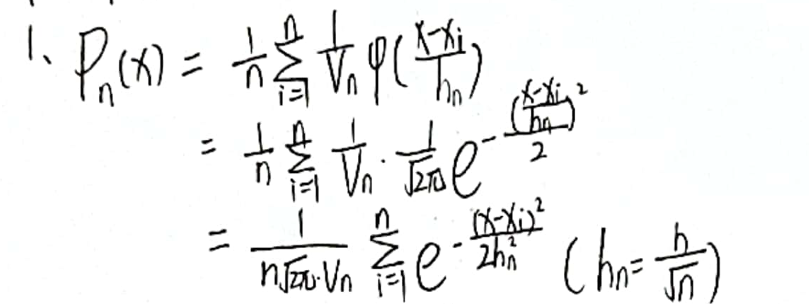 1、Pₙ(x) = 1/n ∑ᵢ₌₁ⁿ 1/Vₙ φ((x-xᵢ)/hₙ)
= 1/n ∑ᵢ₌₁ⁿ 1/Vₙ · 1/√(2π) e^(-((x-xᵢ)/hₙ)²/2)
= 1/(n√(2π)·Vₙ) ∑ᵢ₌₁ⁿ e^(-(x-xᵢ)²/(2hₙ²)) (hₙ = h/√n)